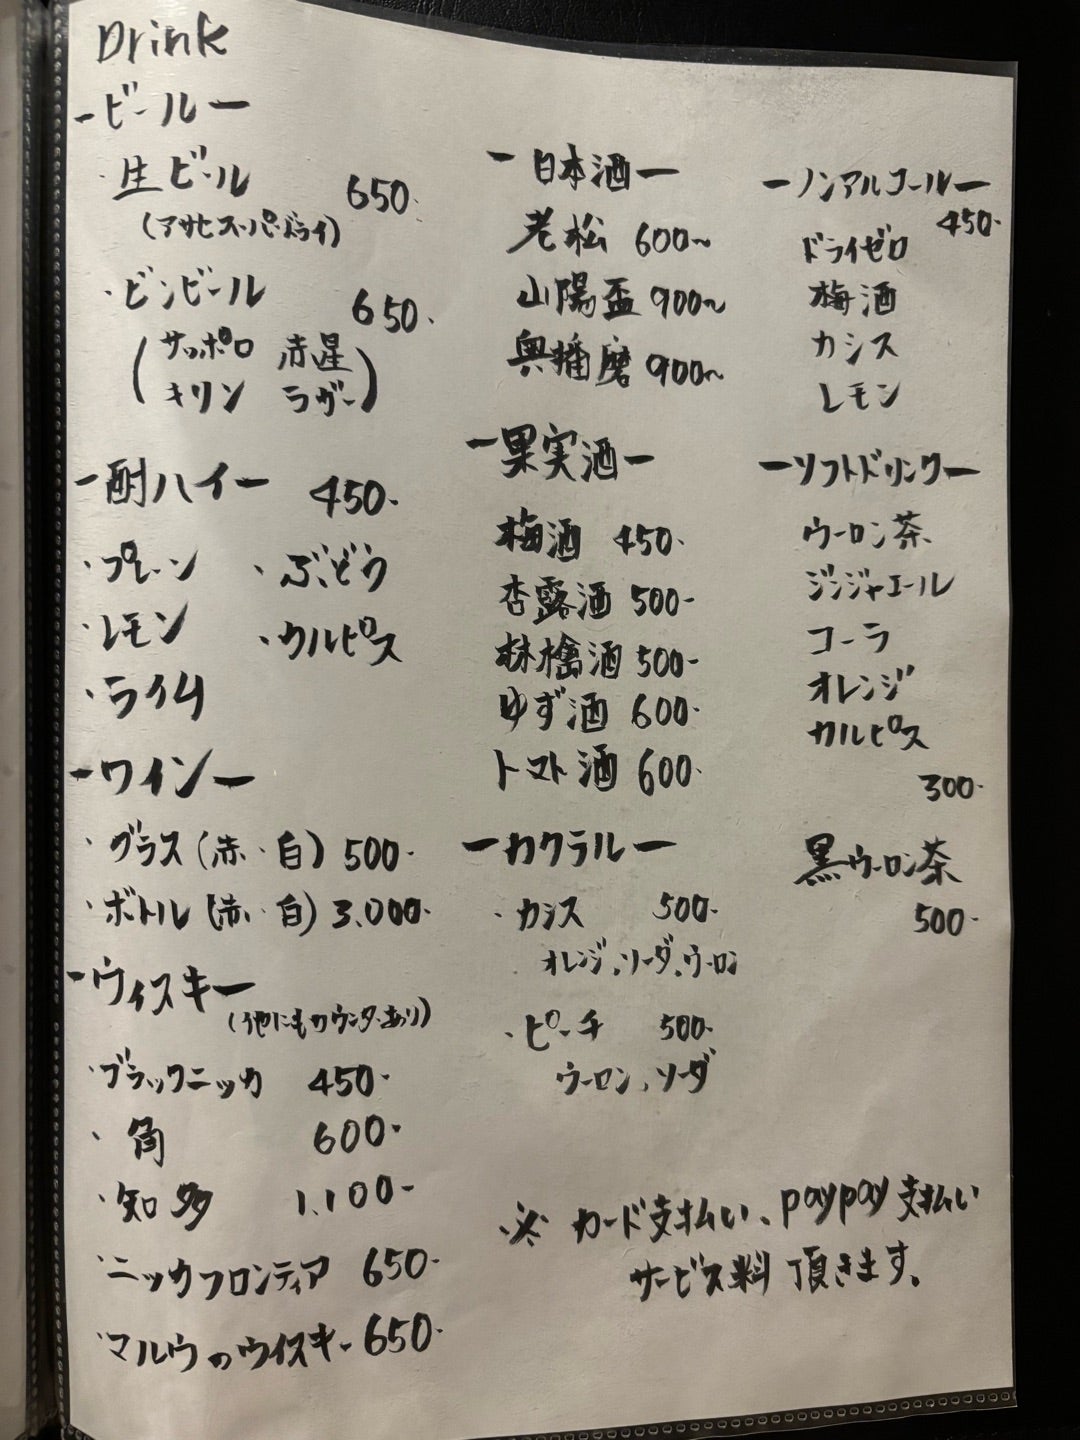 Drink
ービールー
・生ビール 650.
(アサヒスーパードライ)
・ビンビール 650.
(サッポロ 赤星
キリン ラガー)
ー酎ハイー 450-
・プレーン ・ぶどう
・レモン ・カルピス
・ライム
ーワインー
・グラス(赤・白) 500-
・ボトル(赤・白) 3,000-
ーウィスキー
(他にもカウンターあり)
・ブラックニッカ 450-
・角 600-
・知多 1,100-
・ニッカフロンティア 650-
・マルウのウイスキー 650-
ー日本酒ー
老松 600〜
山陽盃 900〜
奥播磨 900〜
ー果実酒ー
梅酒 450-
杏露酒 500-
林檎酒 500-
ゆず酒 600-
トマト酒 600-
ーカクテルー
・カシス 500-
オレンジ、ソーダ、ウーロン
・ピーチ 500-
ウーロン、ソーダ
ーノンアルコールー
450-
ドライゼロ
梅酒
カシス
レモン
ーソフトドリンクー
ウーロン茶
ジンジャエール
コーラ
オレンジ
カルピス
300-
黒ウーロン茶
500-
※ カード支払い、paypay支払い
サービス料 頂きます。